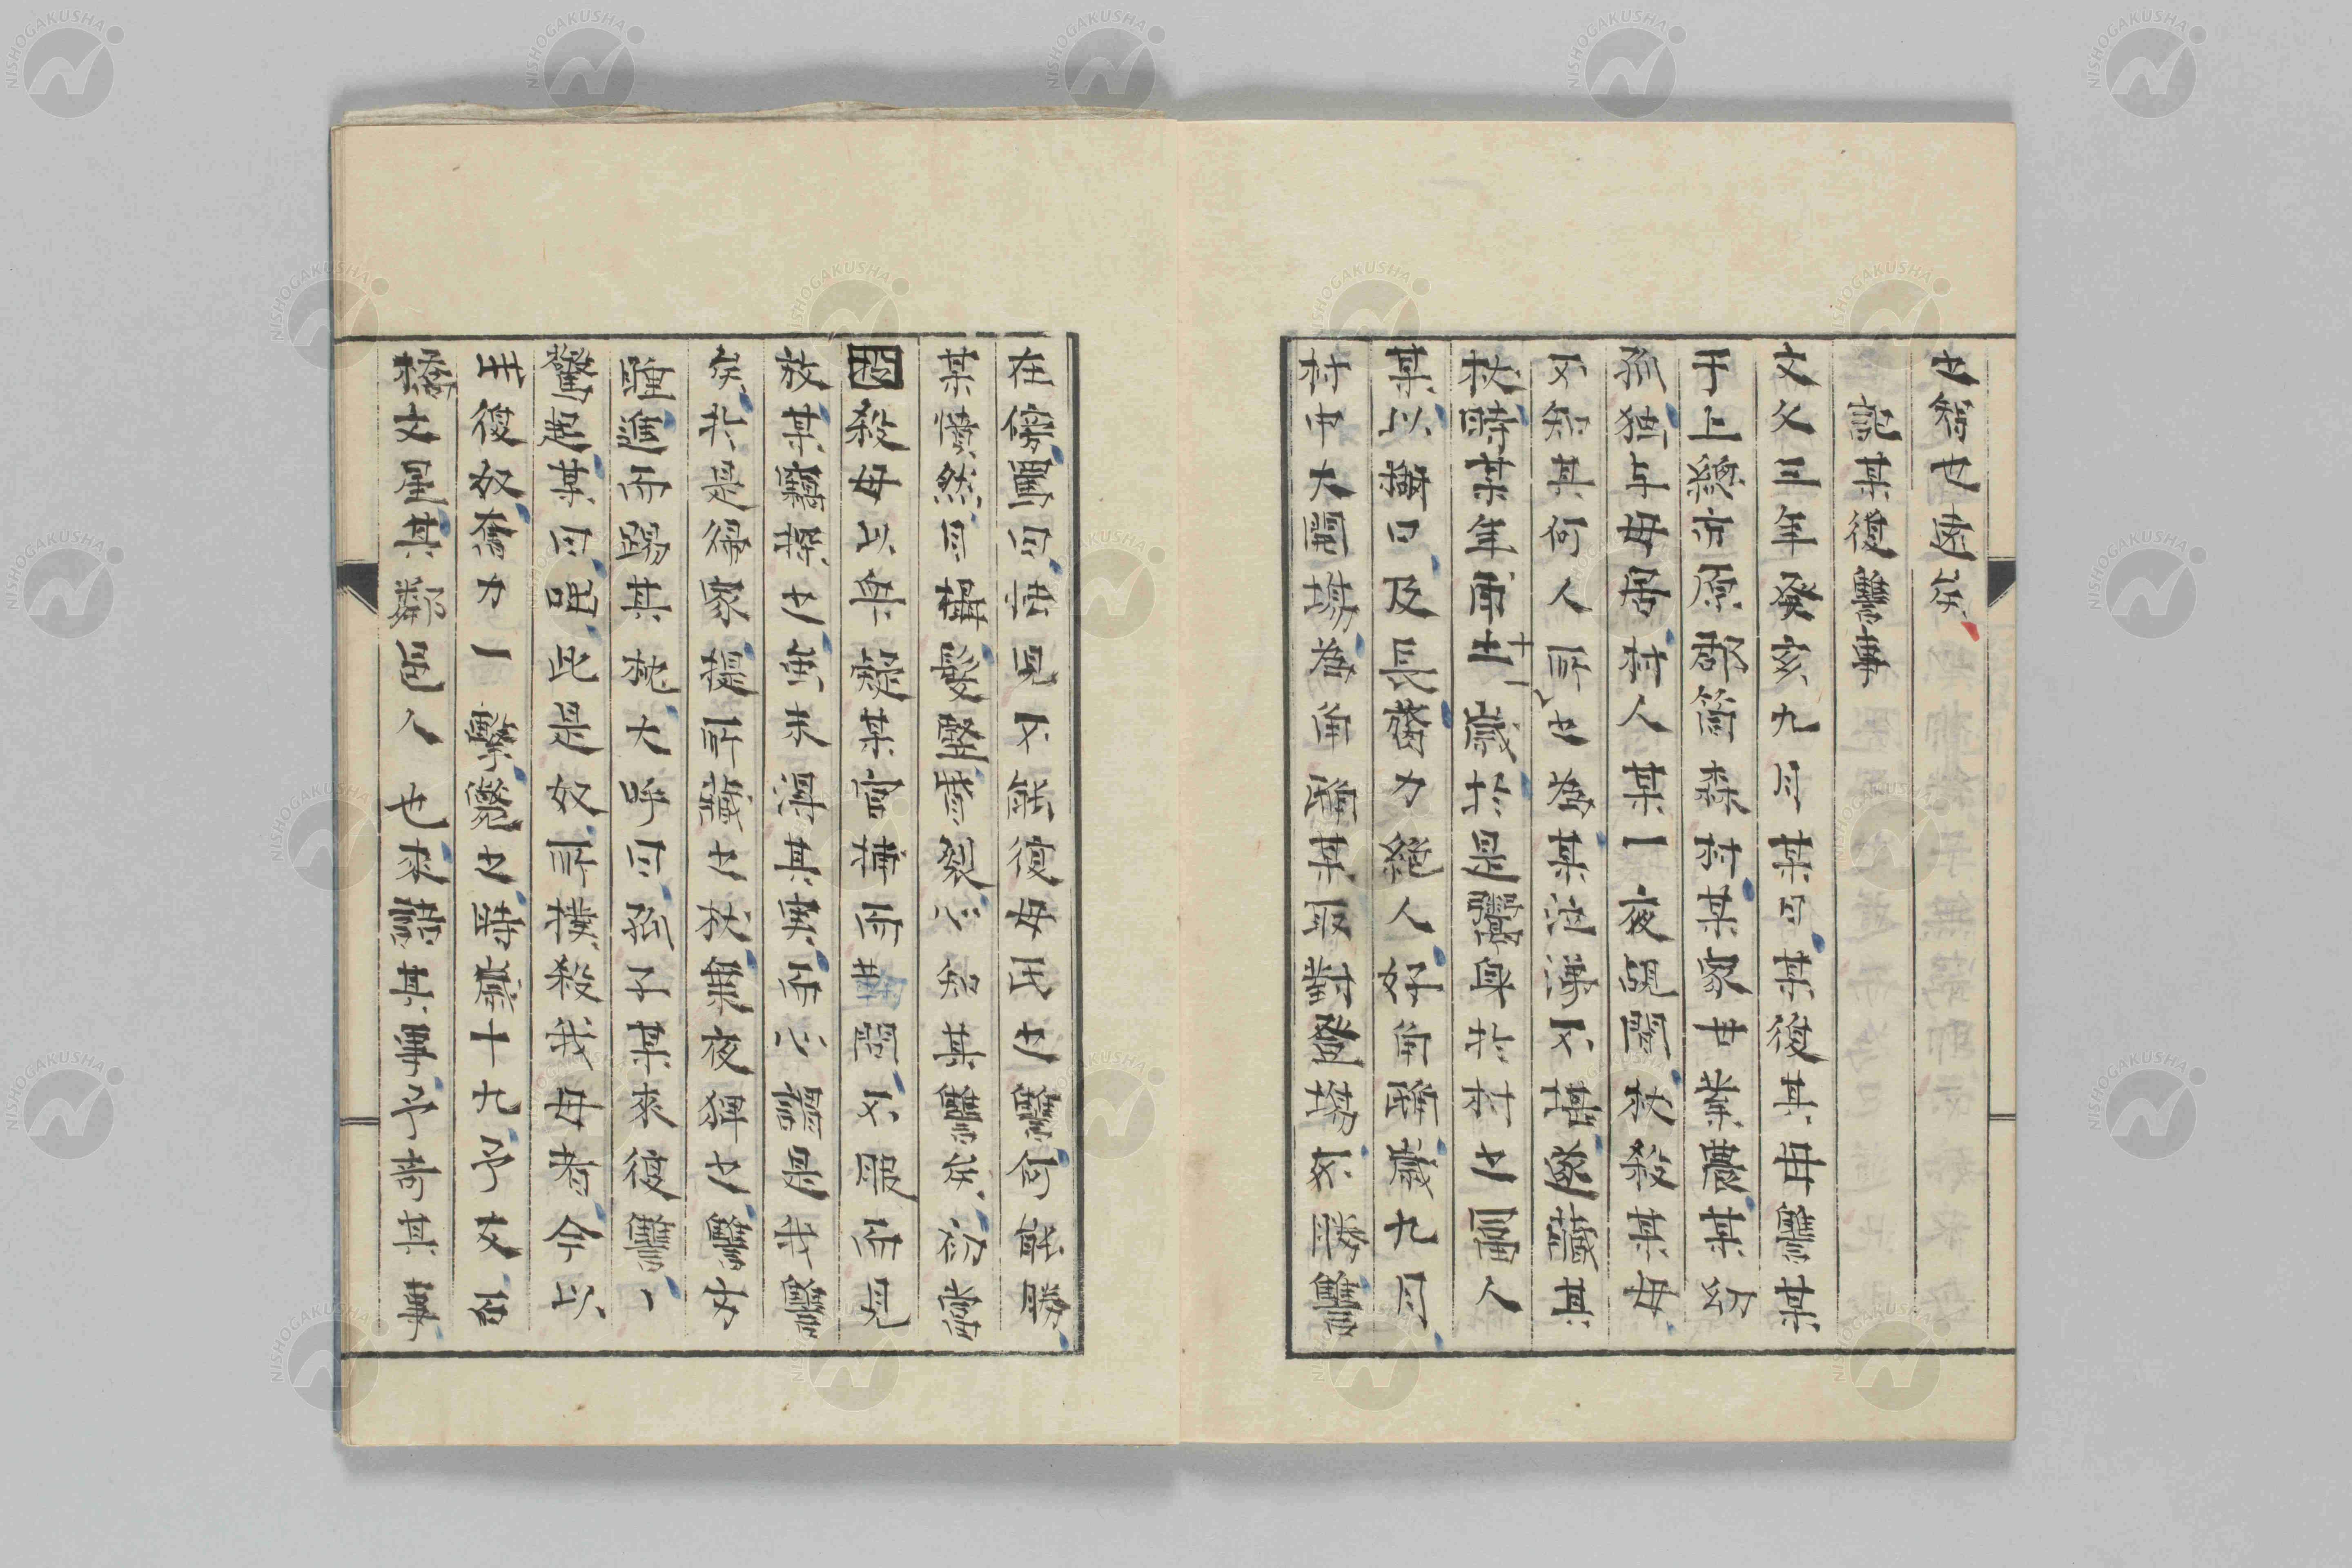 之智也遠矣
記某復讐事
文久三年癸亥九月某日某復其毋讐某
于上總市原郡筒森村某家世業農某幼
孤独与毋居村人某一夜乱鬪杖殺某毋
不知其何人所之為某泣涕不措遂藏其
杖時某年甫十一歳於是鬻身於村之冨人
某以口及長膂力絶人好角觝歳九月
村中大開場為角觝某取對登場不勝讐
在傍罵曰見不能復毋氏之讐何能勝
某憤然曰髪竪眥裂心知某讐矣初嘗
殺毋以疑某官捕而鞫問不服而見
放某竊探之未得其実而心謂是我讐
矣於是帰家提所藏之杖乗夜之讐方
睡進而踢其枕大呼曰孤子某来復讐丶
驚起某曰咄此是奴所撲殺我毋者今以
其復奴奮力一撃斃之時歳十九予友
橋丈居其鄰邑人也来語其事予奇其事